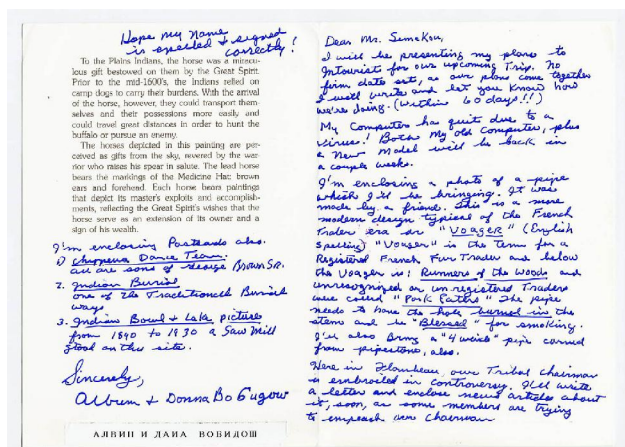 Hope my Name
is spelled & signed
correctly!
To the Plains Indians, the horse was a miracu-
lous gift bestowed on them by the Great Spirit.
Prior to the mid-1600's, the Indians relied on
camp dogs to carry their burdens. With the arrival
of the horse, however, they could transport them-
selves and their possessions more easily and
could travel great distances in order to hunt the
buffalo or pursue an enemy.
The horses depicted in this painting are per-
ceived as gifts from the sky, revered by the war-
rior who raises his spear in salute. The lead horse
bears the markings of the Medicine Hat: brown
ears and forehead. Each horse bears paintings
that depict its master's exploits and accomplish-
ments, reflecting the Great Spirit's wishes that the
horse serve as an extension of its owner and a
sign of his wealth.
I'm enclosing Postcards also.
1) Chippewa Dance Team.
all are sons of George Brown Sr.
2. Indian Burial
one of the Traditional Burial
ways
3. Indian Bowl & Lake pictures
from 1890 to 1930 a Saw Mill
stood on this site.
Sincerely,
& Donna
АЛВИН И ДАНА ВОБИДОШ
Dear Mr.
I will be presenting my plans to
Intourist for our upcoming Trip. No
firm date set, as our plans come together
I will write and let you know how
we're doing. (within 60 days!!)
My Computer has quit due to a
Virus! Both my old Computer, plus
a New Model will be back in
a couple weeks.
I'm enclosing a photo of a pipe
which I'll be bringing. It was
made by a friend. This is a more
modern design typical of the French
Traders era or "VOAGER" (English
Spelling) "Voager" is the term for a
Registered French Fur Trader and below
the Voager is: Runners of the Woods and
unrecognized or unregistered Traders
were called "Pork Eaters" The pipe
needs to have the hole burned in the
stem and be "Blessed" for smoking.
I'll also bring a "4 winds" pipe carved
from pipestone, also.
Here in Flambeau, our Tribal Chairman
is embroiled in controversy. I'll write
a letter and enclose news articles about
it, soon, as some members are trying
to impeach our Chairman